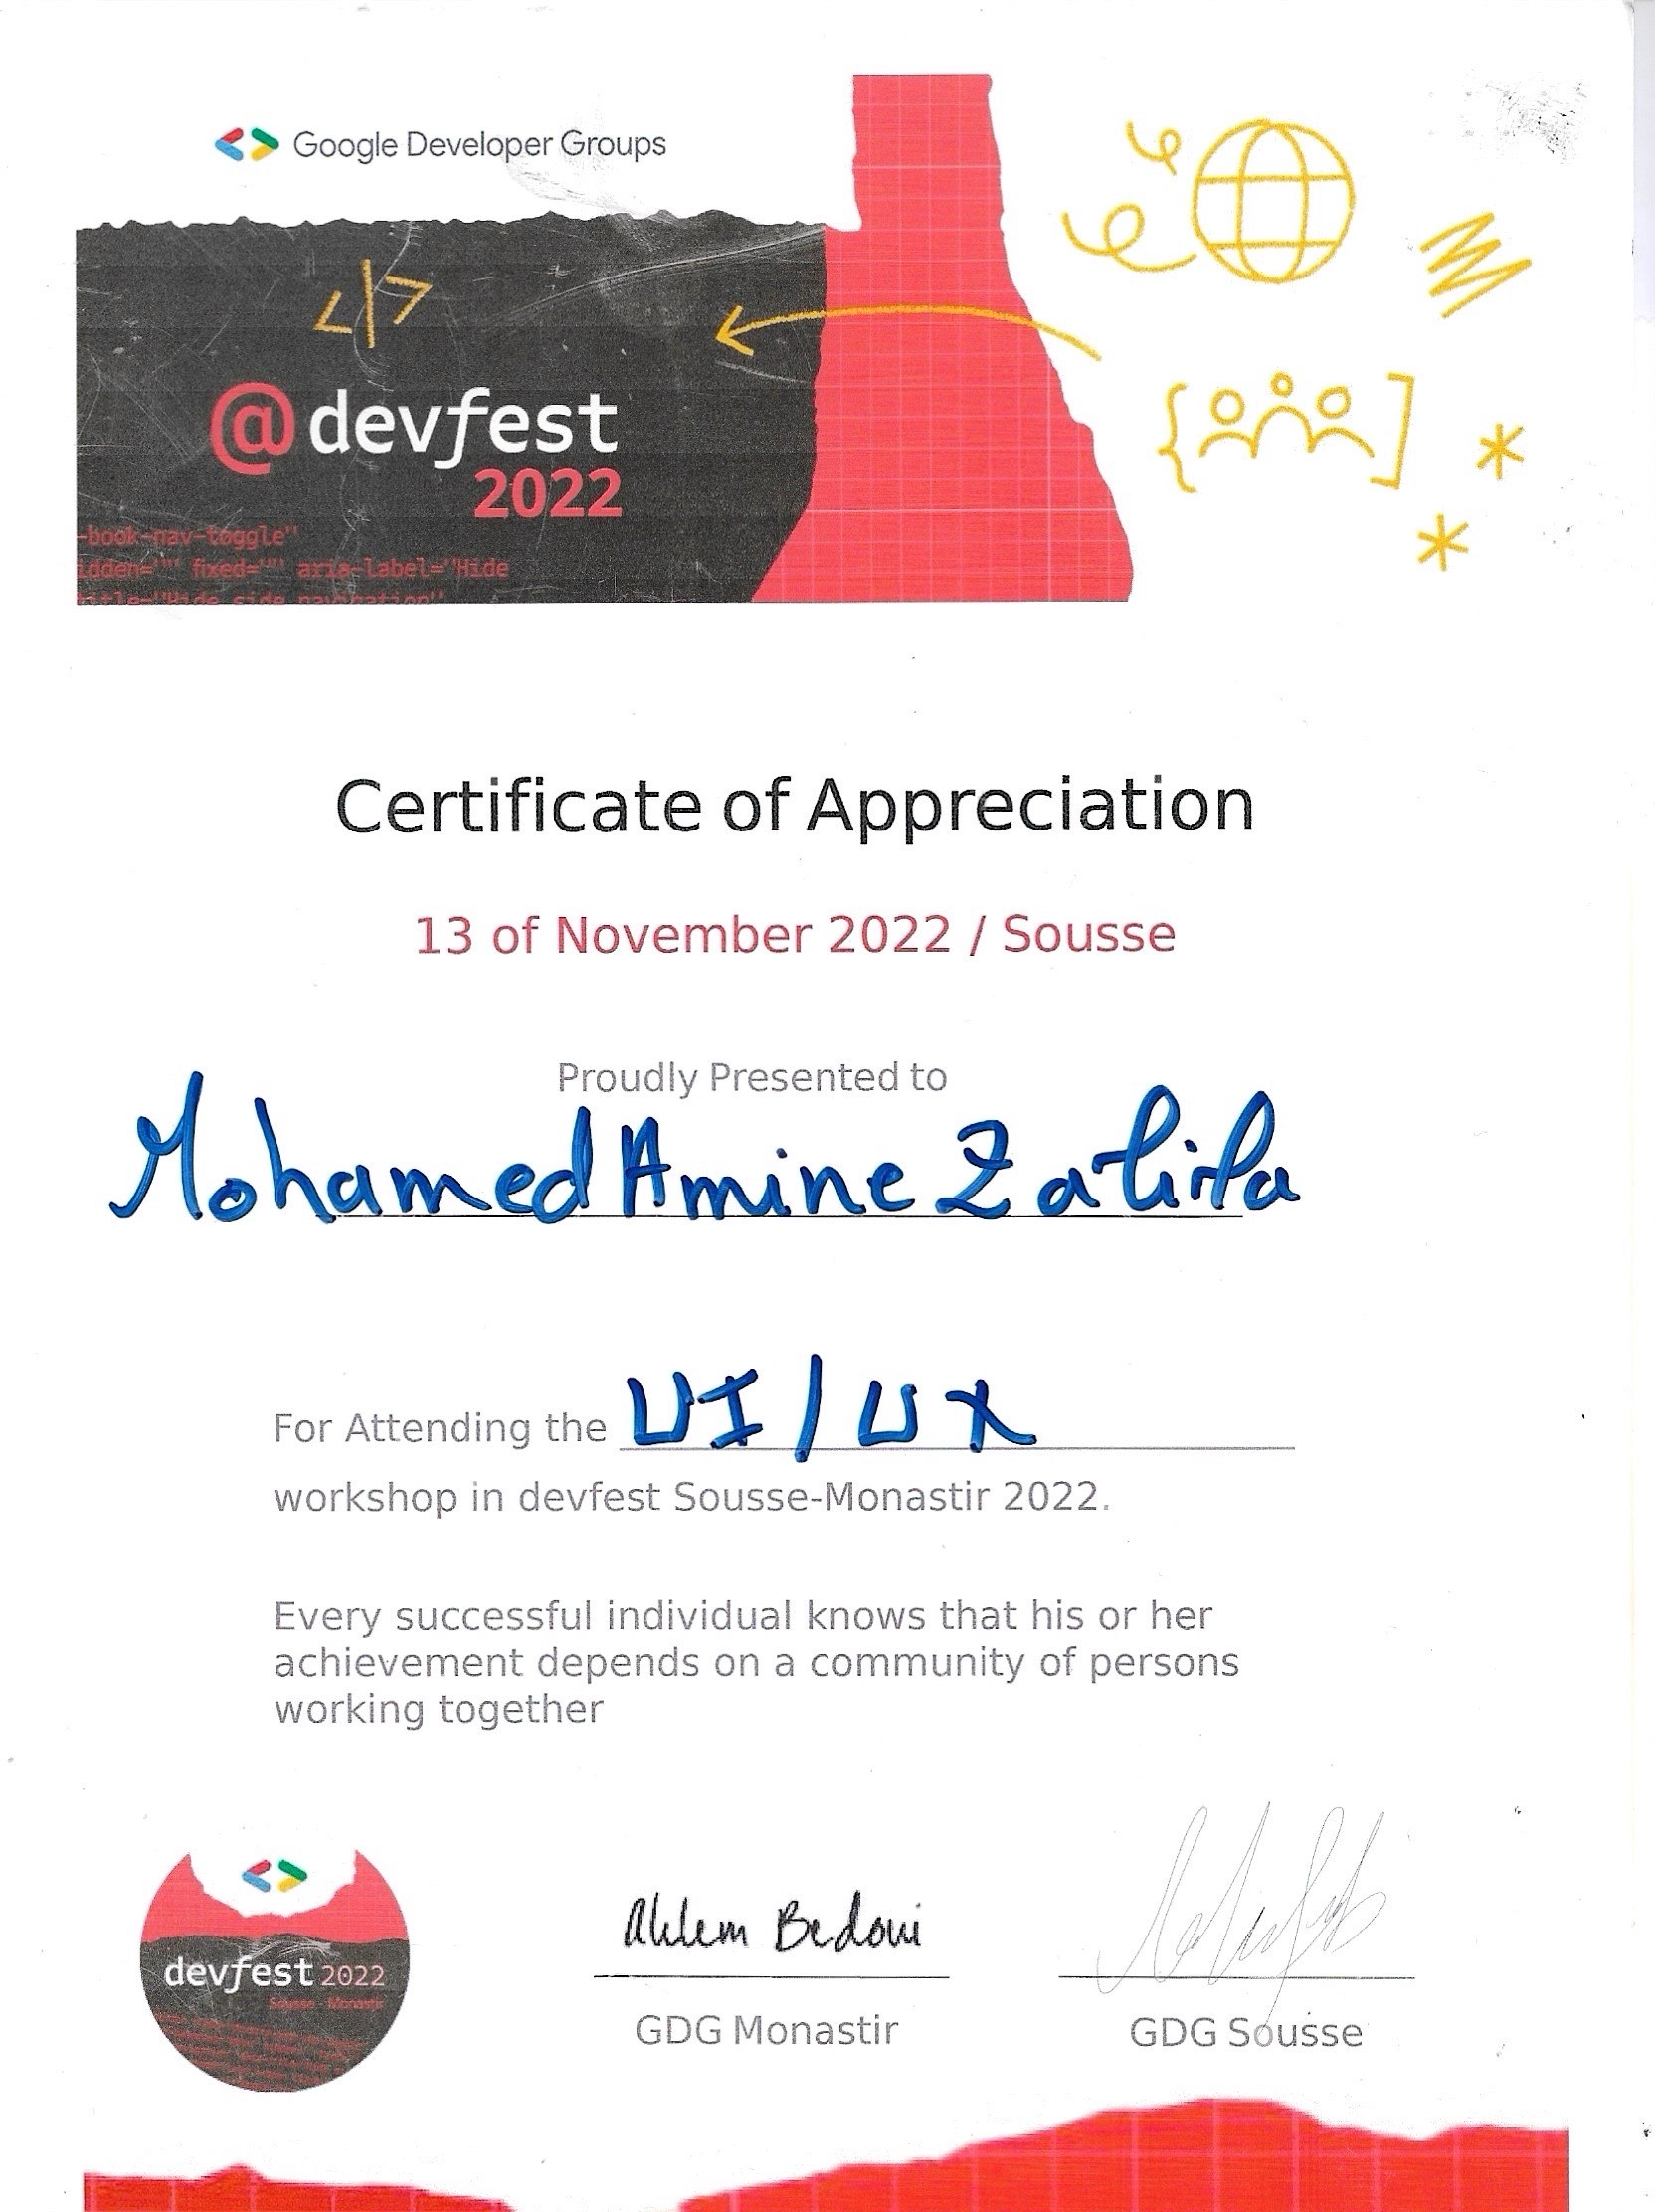 Google Developer Groups
</>
@devfest
2022
-book-nav-toggle"
idden="" fixed="" aria-label="Hide
title="Hide side navigation"
Certificate of Appreciation
13 of November 2022 / Sousse
Proudly Presented to
Mohamed Amine
For Attending the UI/UX
workshop in devfest Sousse-Monastir 2022.
Every successful individual knows that his or her
achievement depends on a community of persons
working together
devfest 2022
Sousse - Monastir
Ahlem Bedoui
GDG Monastir
GDG Sousse